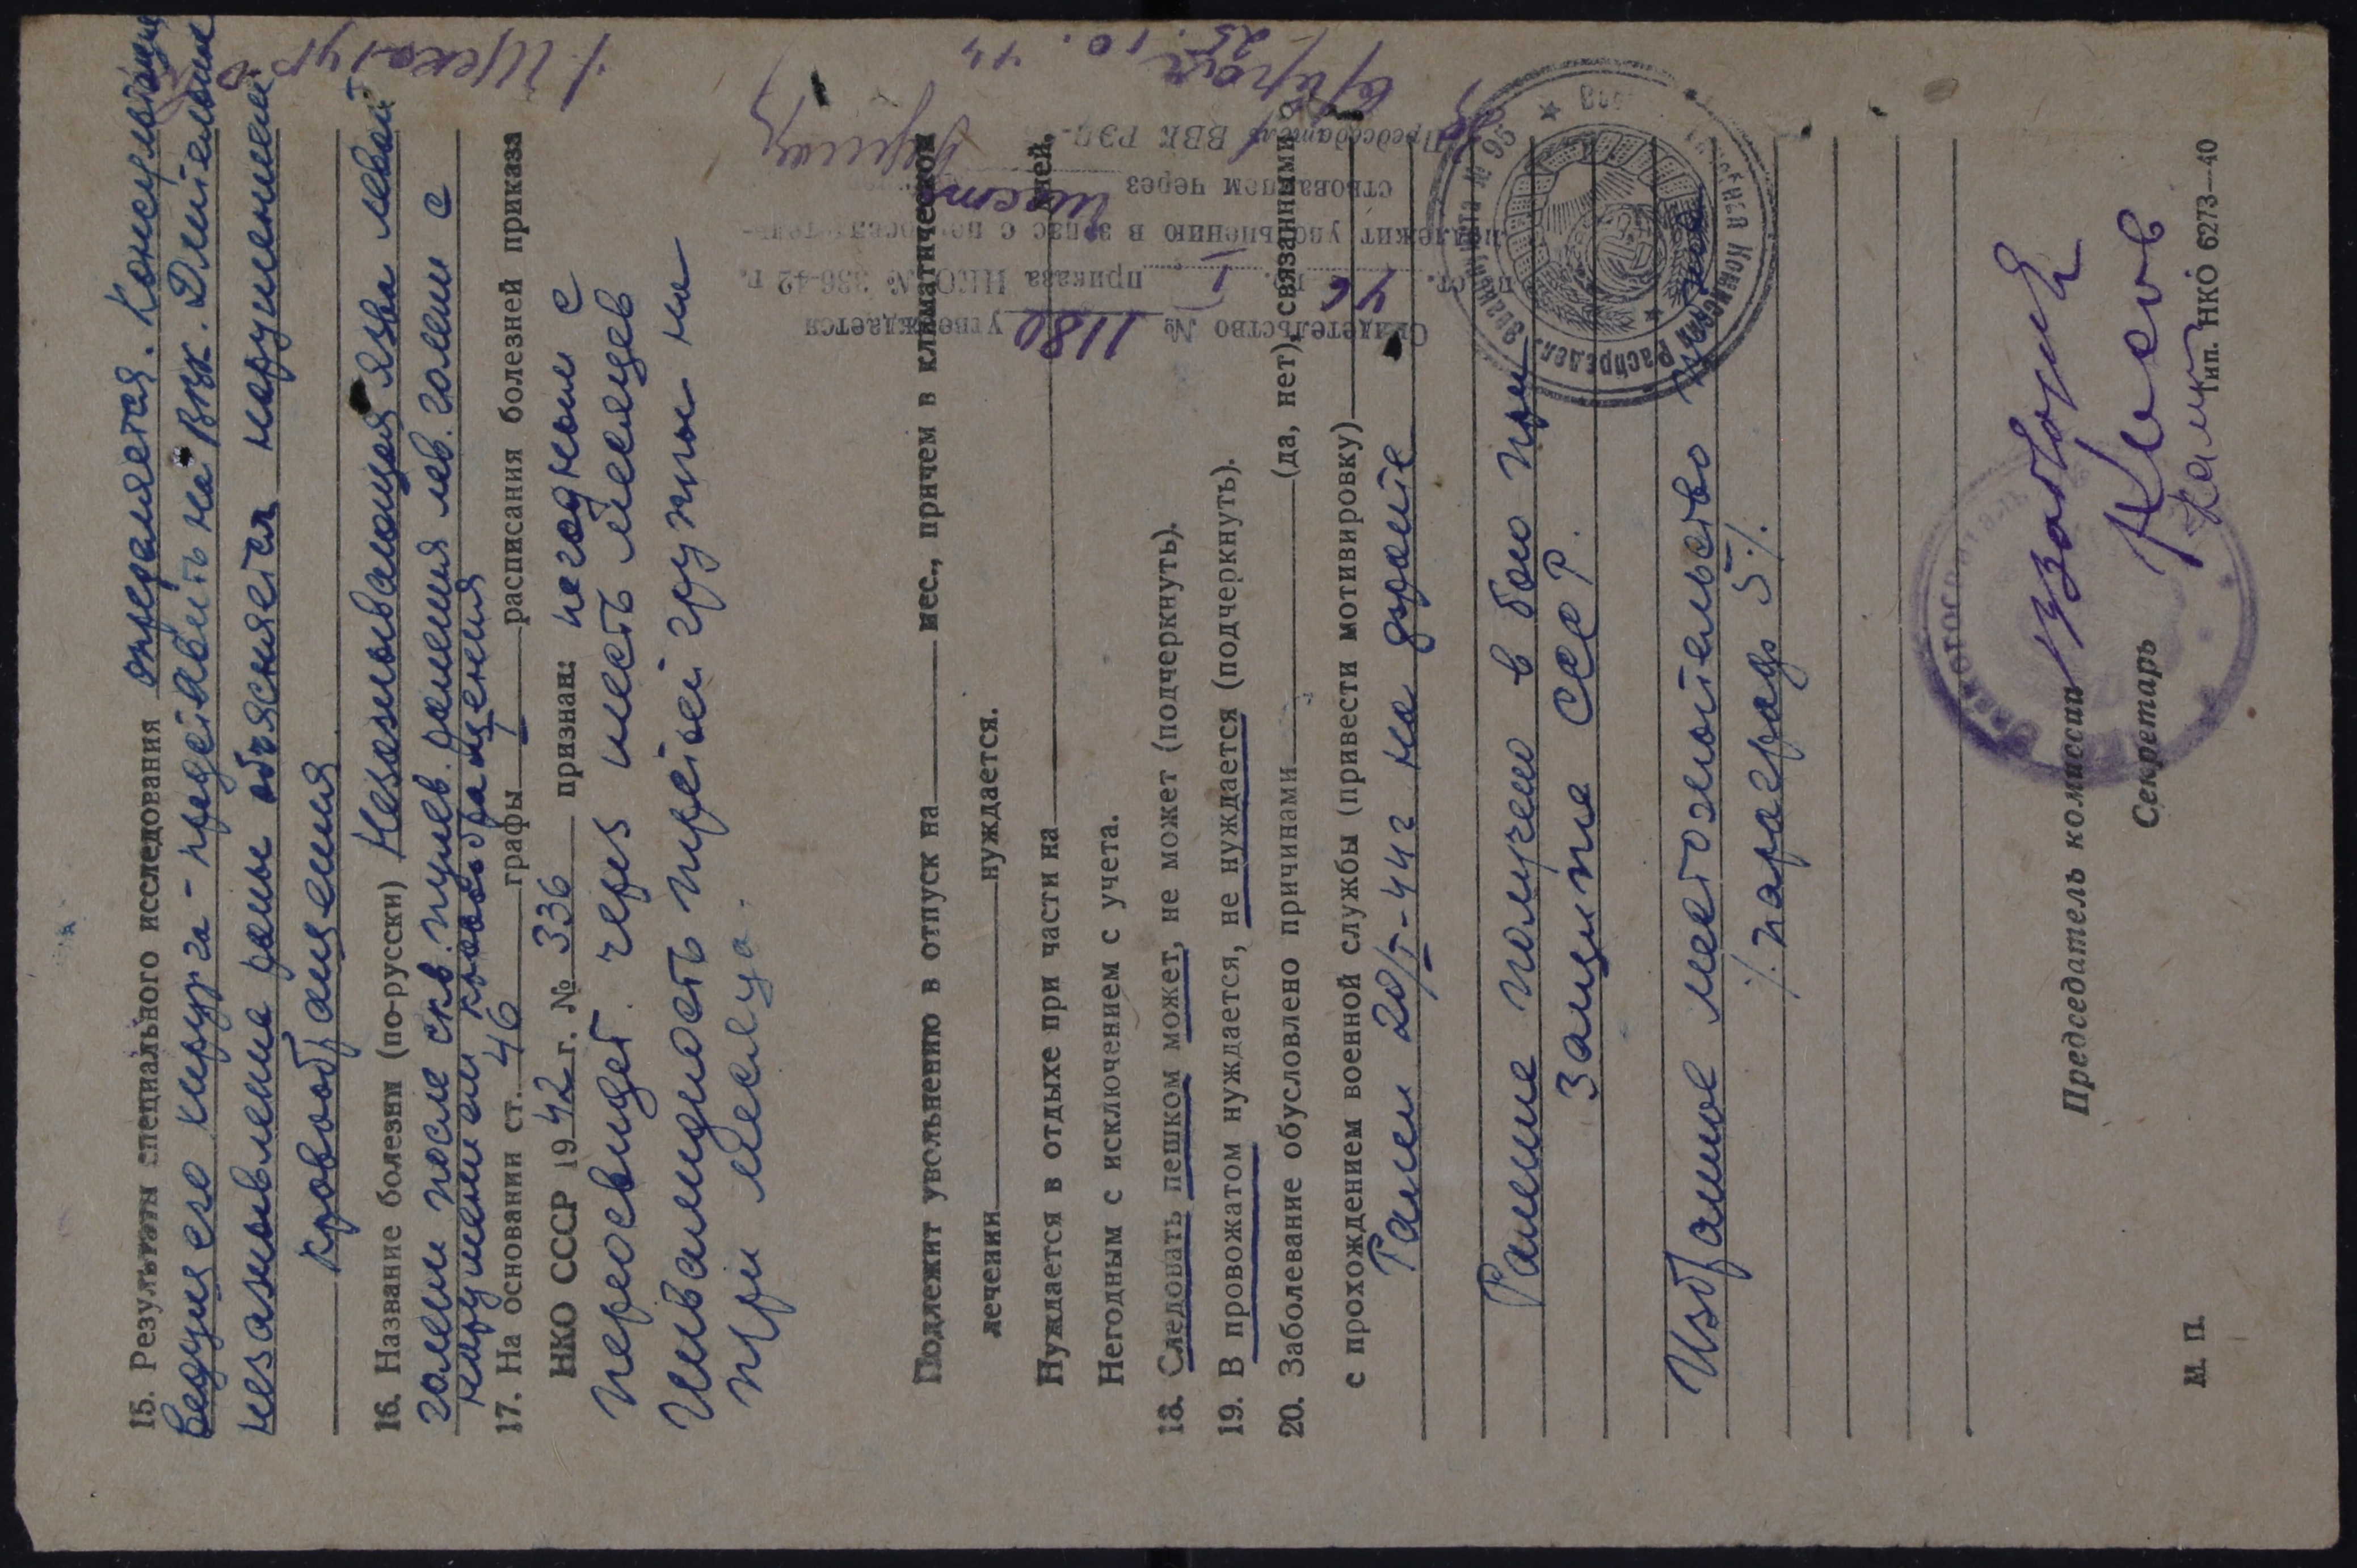 15. Результаты специального исследования определяется. Консультация
ведущего хирурга - представить на ВВК. Длительное
незаживление раны объясняется нарушением
кровообращения
16. Название болезни (по-русски) Незаживающая язва левой
голени после скв. пулев. ранения лев. голени с
нарушением кровообращения
17. На основании ст. 46 графы I расписания болезней приказа
НКО СССР 1942 г. № 336 признан: негодным с
переосвидет. через шесть месяцев
Инвалидность третьей группы на
три месяца.
Подлежит увольнению в отпуск на мес., причем в климатическом
лечении нуждается.
Нуждается в отдыхе при части на дней,
Негодным с исключением с учета.
18. Следовать пешком может, не может (подчеркнуть).
19. В провожатом нуждается, не нуждается (подчеркнуть).
20. Заболевание обусловлено причинами (да, нет), связанными
с прохождением военной службы (привести мотивировку)
Ранен 20/I-44г на фронте
Ранение получено в бою при
защите СССР.
Избранное местожительство
параграф 5
Председатель комиссии
Секретарь
М. П.
Тип. НКО 6273—40
Свидетельство № 1180 утверждается
по ст. 46 гр. I приказа НКО № 336-42 г.
подлежит увольнению в запас с переосвидетель-
ствованием через шесть
Председатель ВВК РЭП-
25.10.44
Эвакогоспиталь
Распредел. Эвакопункта № 95